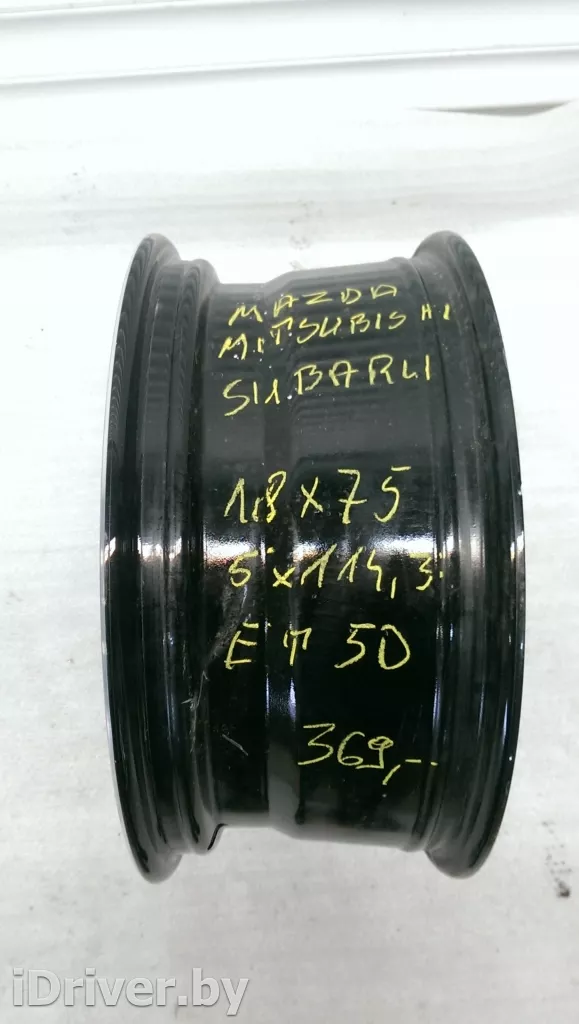 MAZDA
MITSUBISHI
SUBARU
18x75
5x114,3
ET 50
369,--
iDriver.by